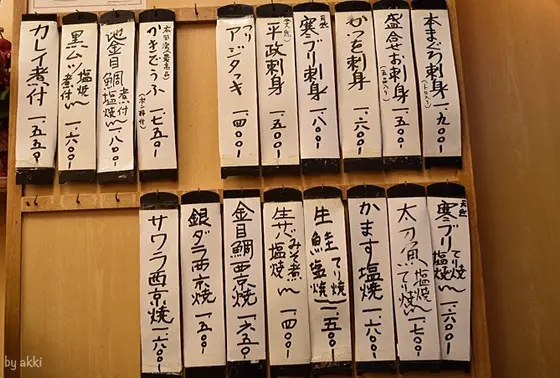 本まぐろ刺身(トロ入り) 一、九〇〇
盛合せお刺身(五点入り) 一、五〇〇
かつを刺身 一、六〇〇
天然 寒ブリ刺身 一、八〇〇
(天然) 平政刺身 一、五〇〇
アジタタキ 一、四〇〇
かきどうふ 一、七五〇
地金目鯛 煮付 塩焼 一、八〇〇
黒ムツ 塩焼 煮付 一、六〇〇
カレイ煮付 一、五五〇
天然 寒ブリ てり焼 塩焼 一、六〇〇
太刀魚 塩焼 てり焼 一、七〇〇
かます塩焼 一、六〇〇
生鮭 てり焼 塩焼 一、五〇〇
生サバ みそ煮 塩焼 一、四〇〇
金目鯛西京焼 一、六五〇
銀ダラ西京焼 一、五〇〇
サワラ西京焼 一、六〇〇
by akki